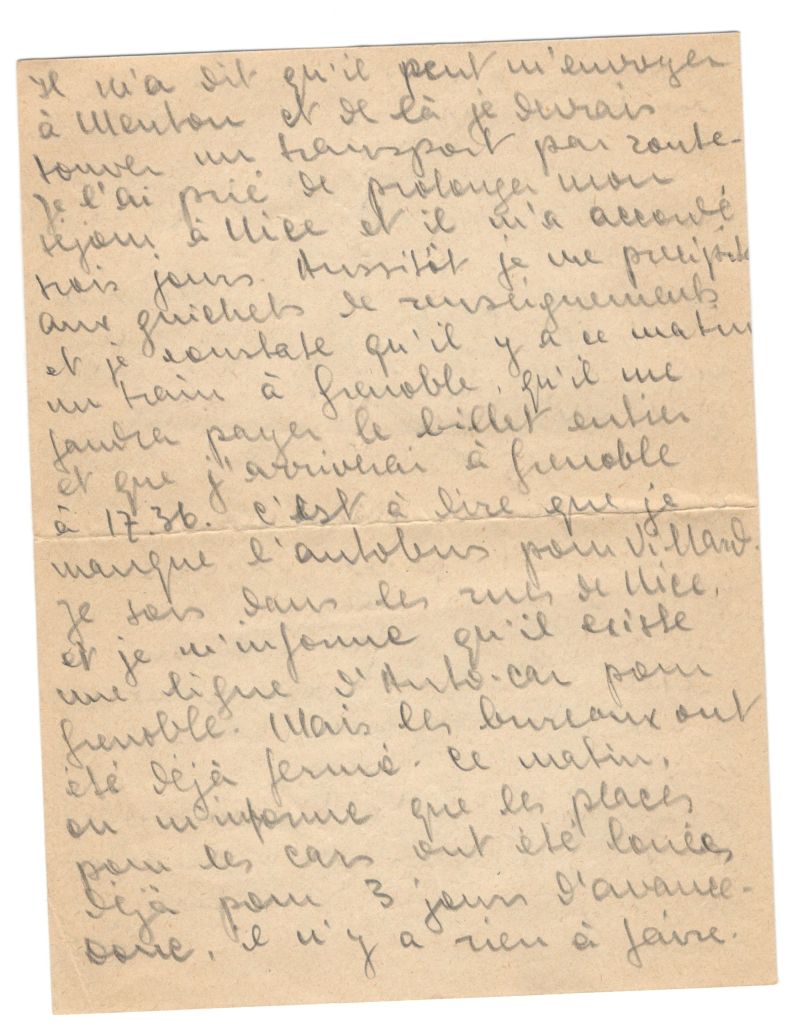 Il m'a dit qu'il peut m'envoyer
à Menton et de là je devrais
touver un transport par route.
Je l'ai prié de prolonger mon
séjour à Nice et il m'a accordé
trois jours. Aussitôt je me précipite
aux guichets de renseignements
et je constate qu'il y a ce matin
un train à Grenoble, qu'il me
faudra payer le billet entier
et que j'arriverai à Grenoble
à 17.36. C'est à dire que je
manque l'autobus pour Villard.
Je sors dans les rues de Nice,
et je m'informe qu'il existe
une ligne d'Auto-car pour
Grenoble. Mais les bureaux ont
été déjà fermé. Ce matin,
on m'informe que les places
pour les cars ont été louées
déjà pour 3 jours d'avance.
Donc, il n'y a rien à faire.